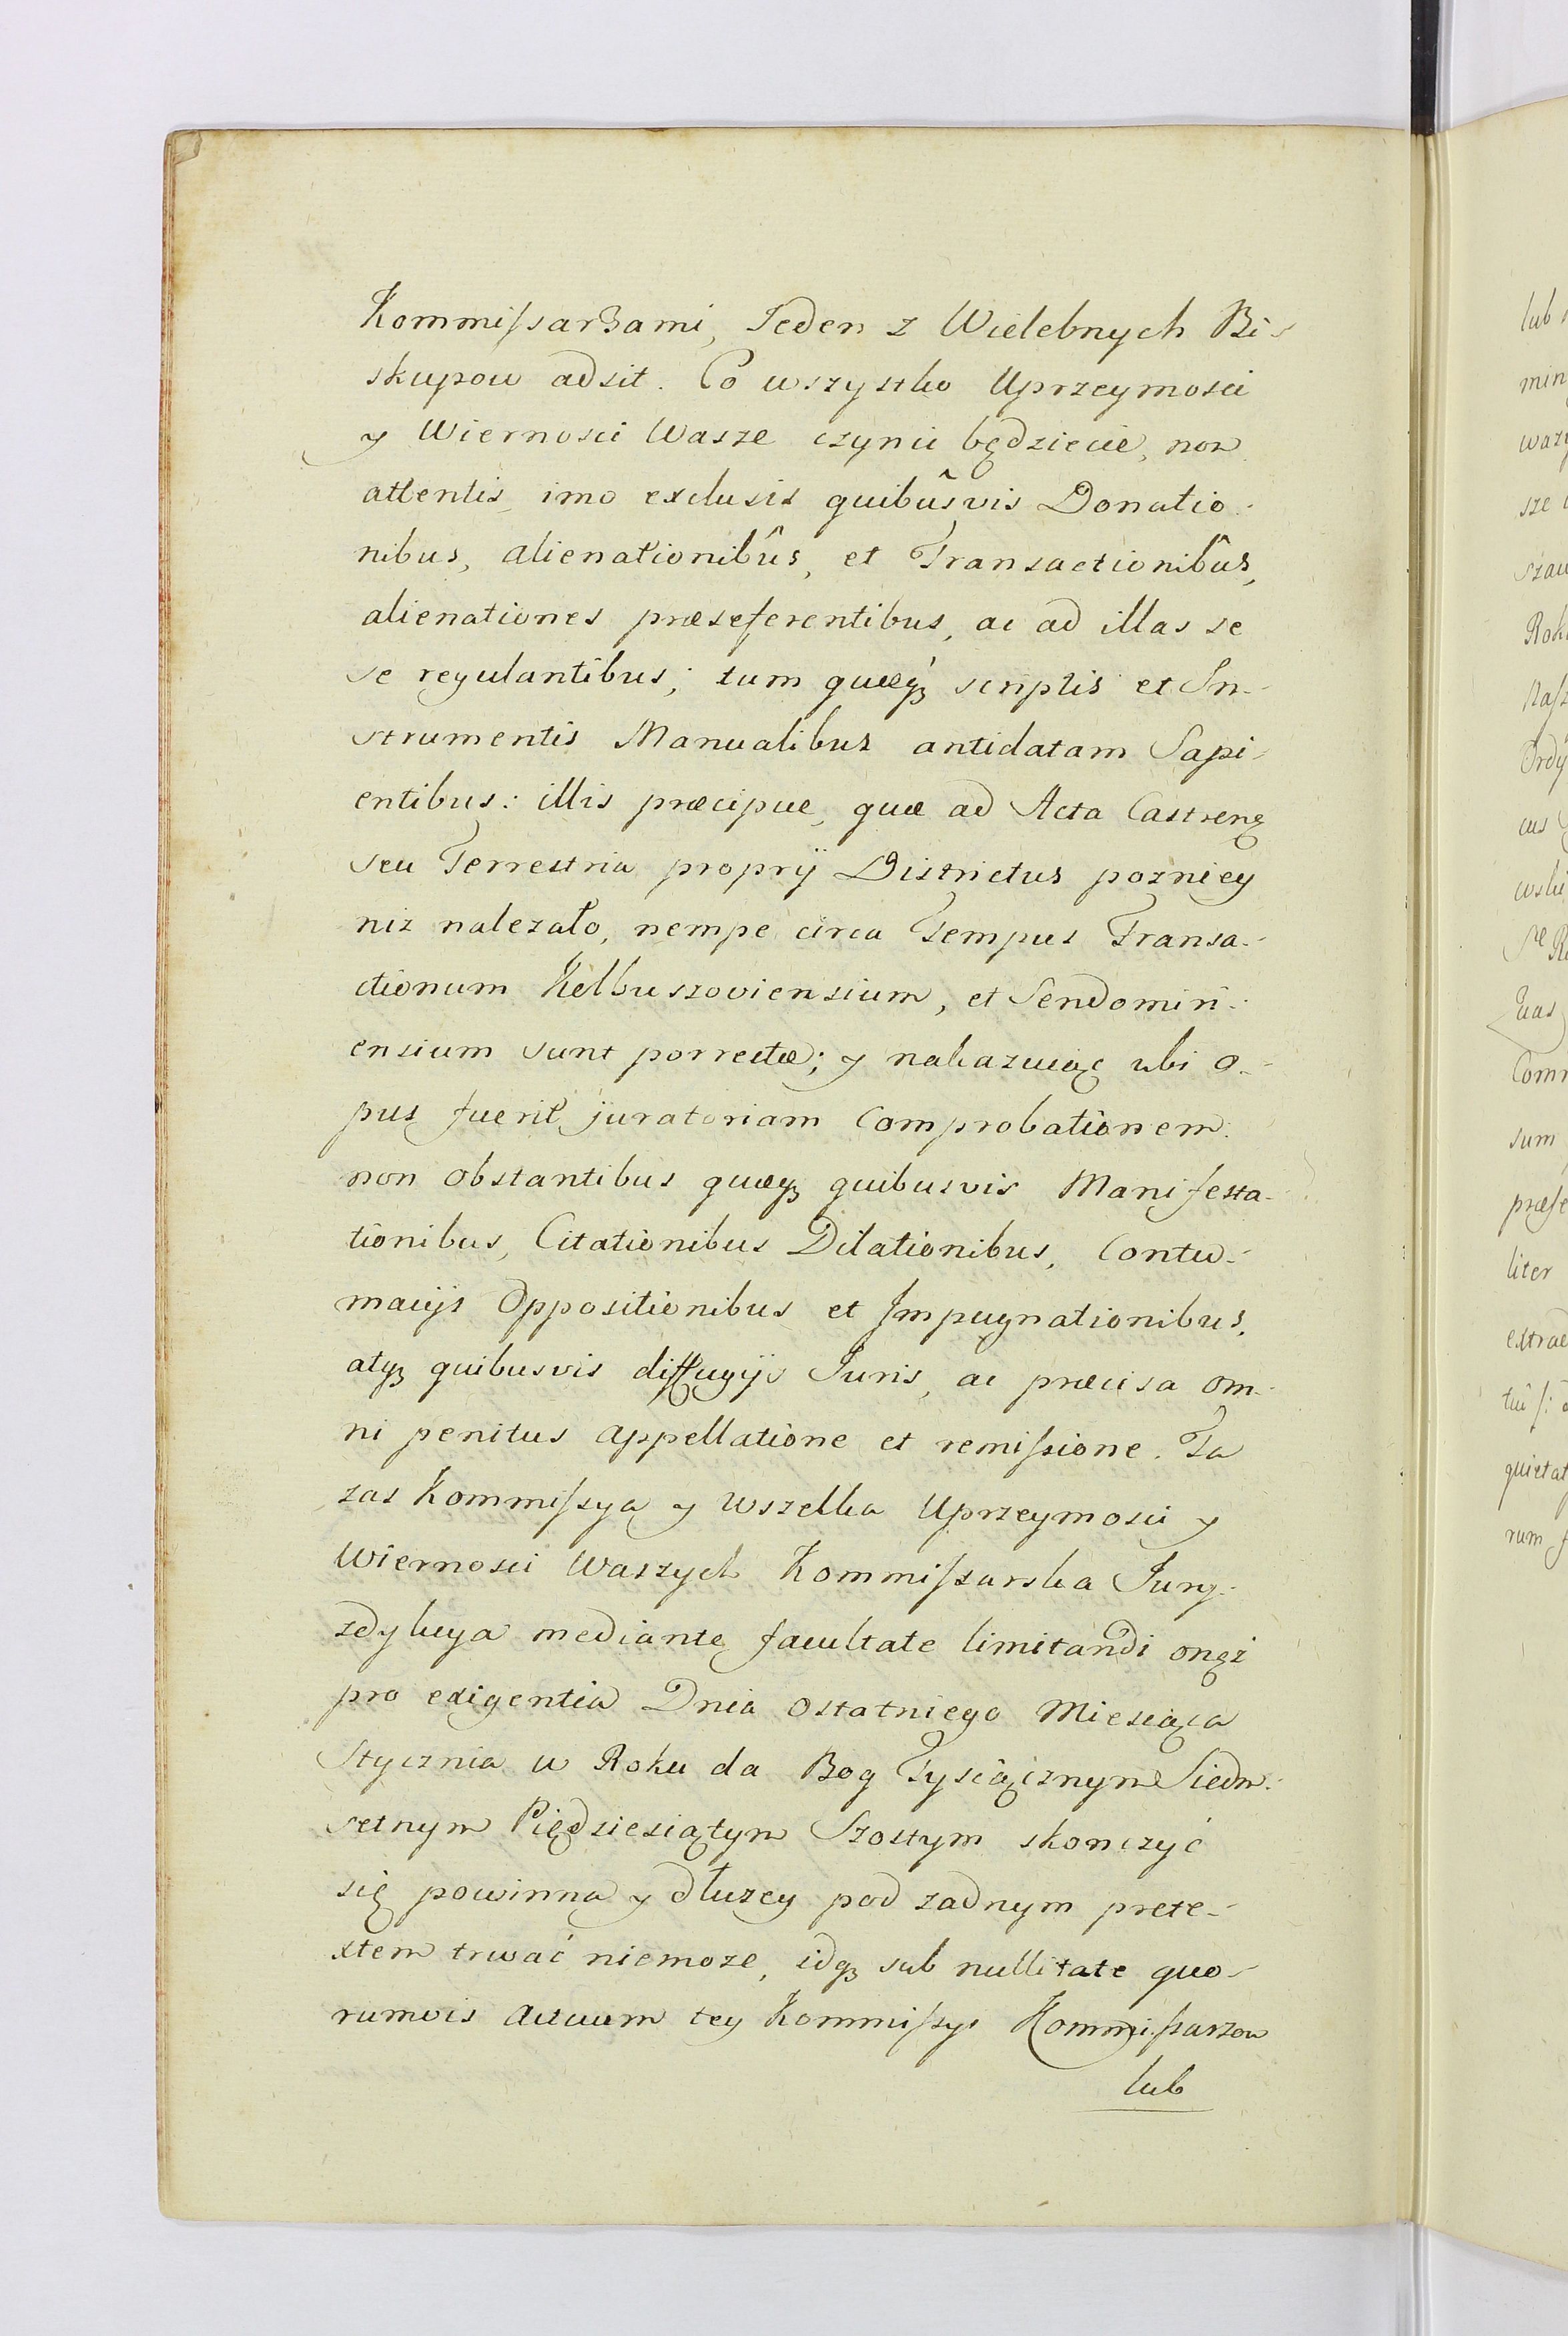 Kommiſsarzami, Jeden z Wielebnych Bi-
skupow adsit. Co wszystko Uprzeymosci
y Wiernosci Wasze czynić będziecie, non
attentis imo exclusis quibûsvis Donatio-
nibus, alienationibûs, et Transactionibûs,
alienationes præseferentibus, ac ad illas se
se regulantibus; tum quæqꝫ scriptis et In-
strumentis Manualibus antidatam Sapi-
entibus: illis præcipue, quæ ad Acta Castrenꝫ
seu Terrestria proprÿ Districtus pozniey
niz nalezało, nempe circa Tempus Transa-
ctionum Kolbuszoviensium, et Sendomiri-
ensium sunt porrectæ; y nakazuiąc ubi o-
pus fuerit juratoriam Comprobationem.
non obstantibus quæqꝫ quibusvis Manifesta-
tionibus, Citationibus Dilationibus, Contu-
macijs Oppositionibus et Impugnationibus,
atqꝫ quibusvis diffugijs Juris, ac præcisa om-
ni penitus appellatione et remiſsione. Ta
zas Kommiſsya y wszelka Uprzeymosci y
Wiernosci Waszych Kommiſsarska Jury-
zdykcya mediante facultate limitandi onęż
pro exigentia Dnia ostatniego Miesiąca
Stycznia w Roku da Bog Tysiącznym Siedm-
setnym Pięćdziesiątym Szostym skonczyć
się powinna y dłuzey pod zadnym prete-
xtem trwać niemoze, idqꝫ sub nullitate quo-
rumvis Actuum tey Kommiſsyi Kommiſsarzow
lub